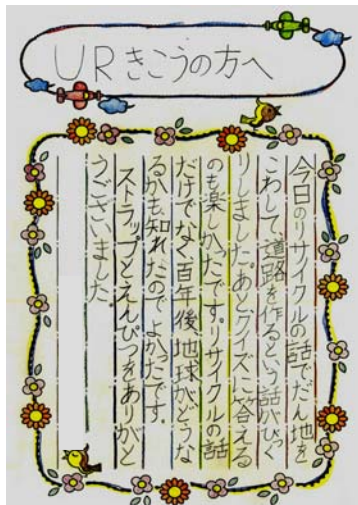 URきこうの方へ
今日のリサイクルの話でだん地を
こわして、道路を作るという話がびっく
りしました。あとクイズに答える
のも楽しかったです。リサイクルの話
だけでなく百年後地球がどうな
るかも知れたのでよかったです。
ストラップとえんぴつをありがと
うございました。